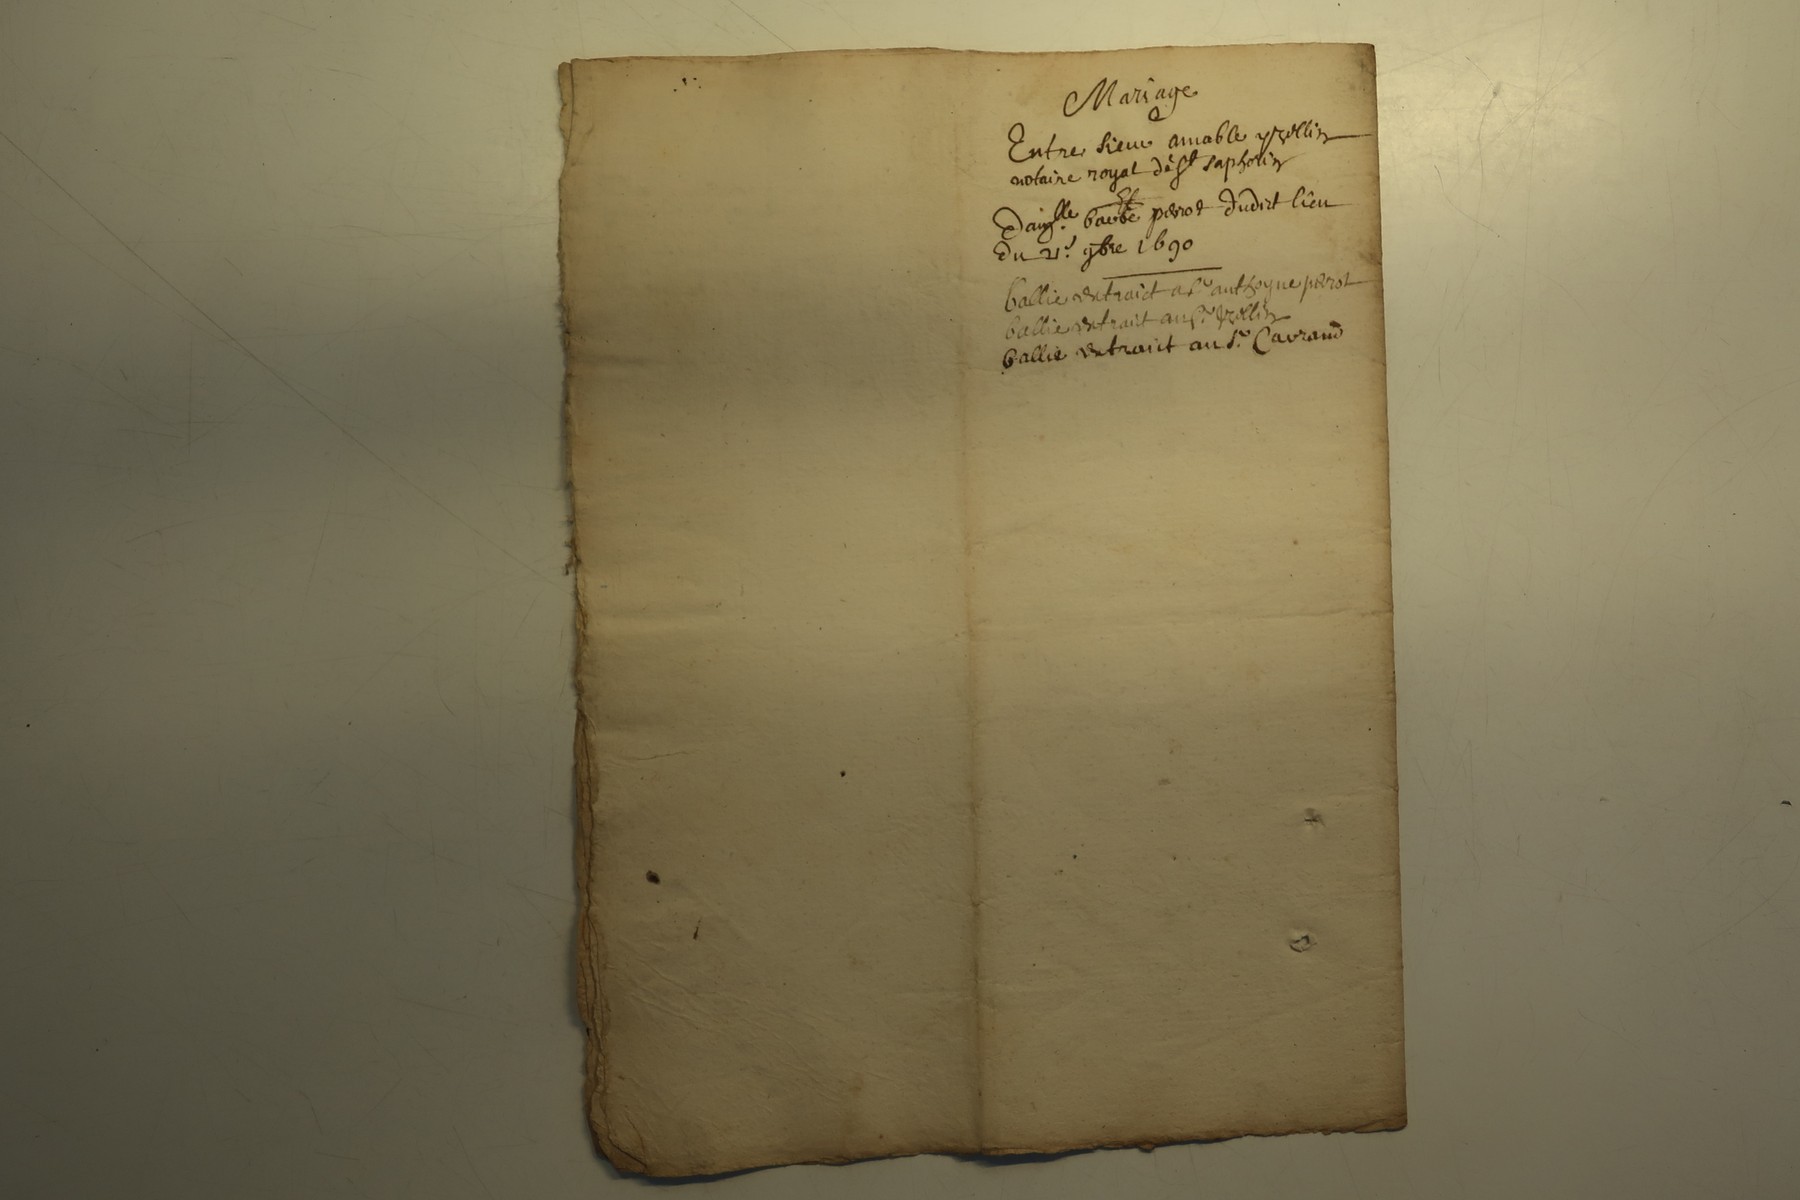 Mariage
Entre sieur amable yvellin
notaire royal de st saphorin
Et
Daiglle barbe perrot dudict lieu
du 21e 9bre 1690
ballie extraict a sr anthoyne perrot
ballie extraict au sr yvellin
ballie extraict au sr